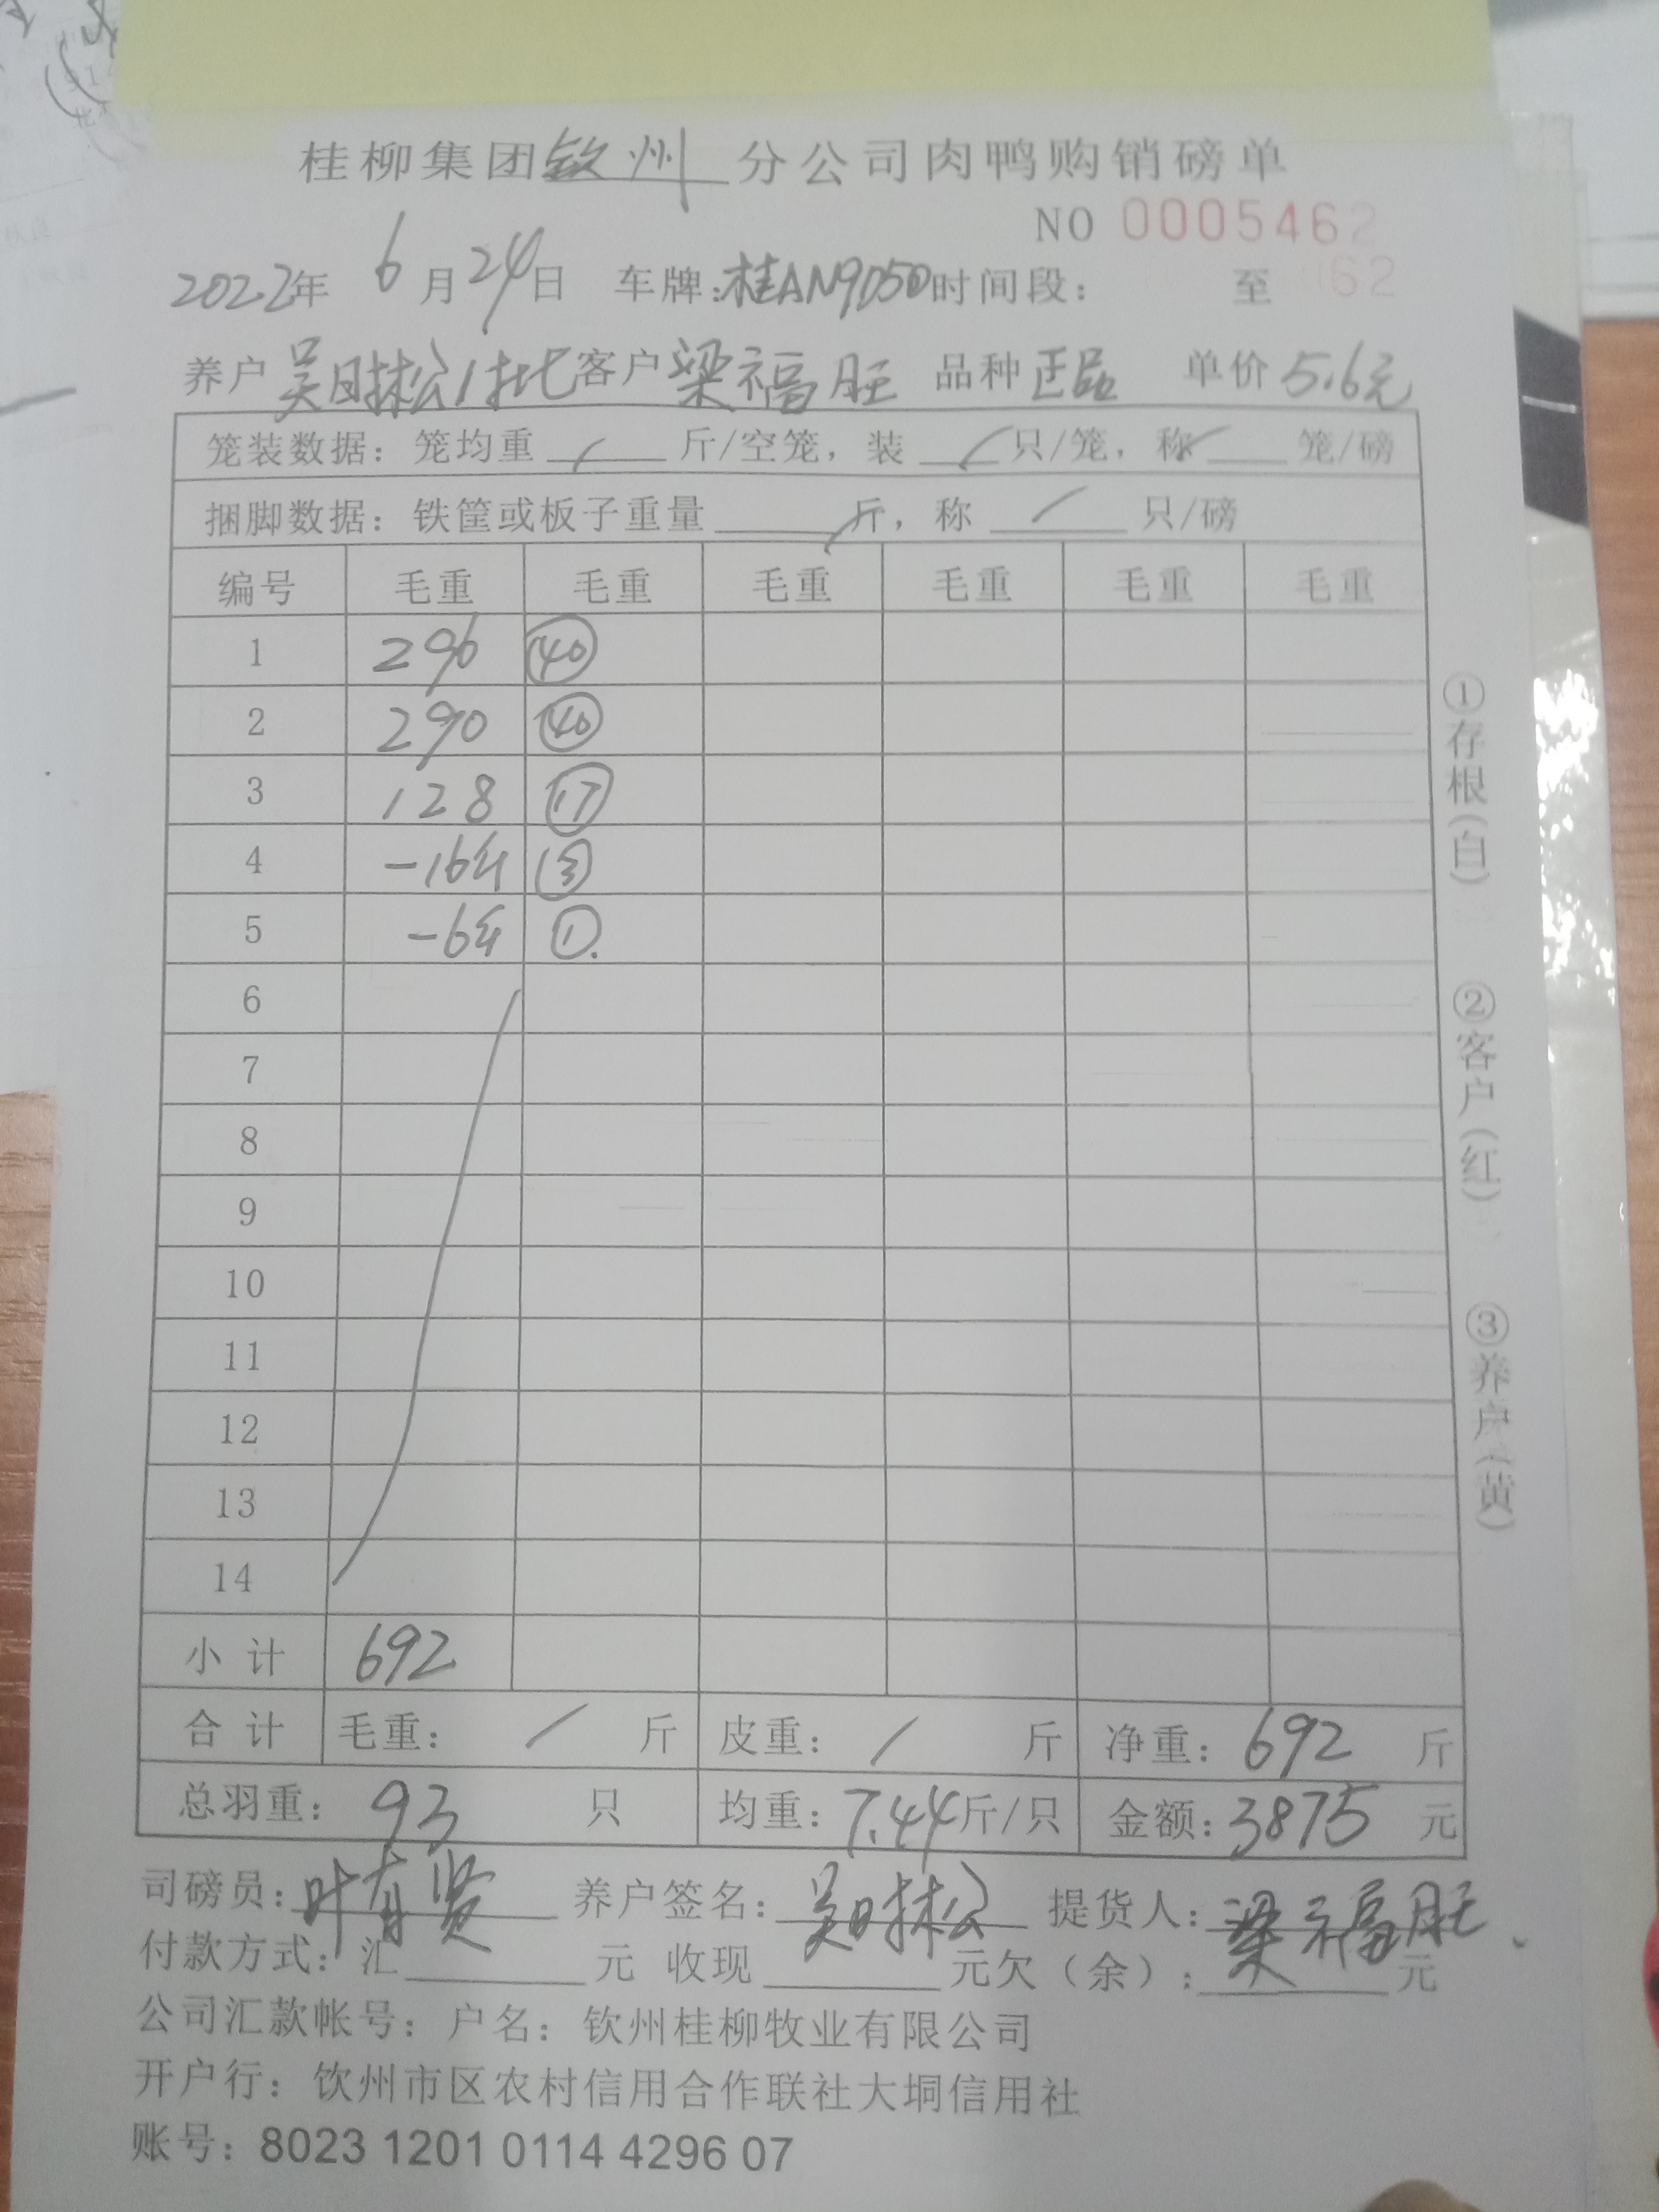 桂柳集团钦州分公司肉鸭购销磅单
NO 0005462
2022年 6月24日 车牌:桂AN9D50 时间段: 至
养户 吴日抹公1批 客户 梁福旺 品种 正品 单价 5.6元
笼装数据:笼均重 / 斤/空笼,装 / 只/笼,称 / 笼/磅
捆脚数据:铁筐或板子重量 / 斤,称 / 只/磅
编号 毛重 毛重 毛重 毛重 毛重 毛重
1 296 40
2 290 40
3 128 17
4 -16斤 3
5 -6斤 1
6
7
8
9
10
11
12
13
14
小计 692
合计 毛重: / 斤 皮重: / 斤 净重:692 斤
总羽重:93 只 均重:7.44斤/只 金额:3875 元
司磅员:叶有贤 养户签名:吴日抹公 提货人:梁福旺
付款方式:汇 元 收现 元欠(余): 元
公司汇款帐号:户名:钦州桂柳牧业有限公司
开户行:钦州市区农村信用合作联社大垌信用社
账号:8023 1201 0114 4296 07
①存根(白) ②客户(红) ③养户(黄)